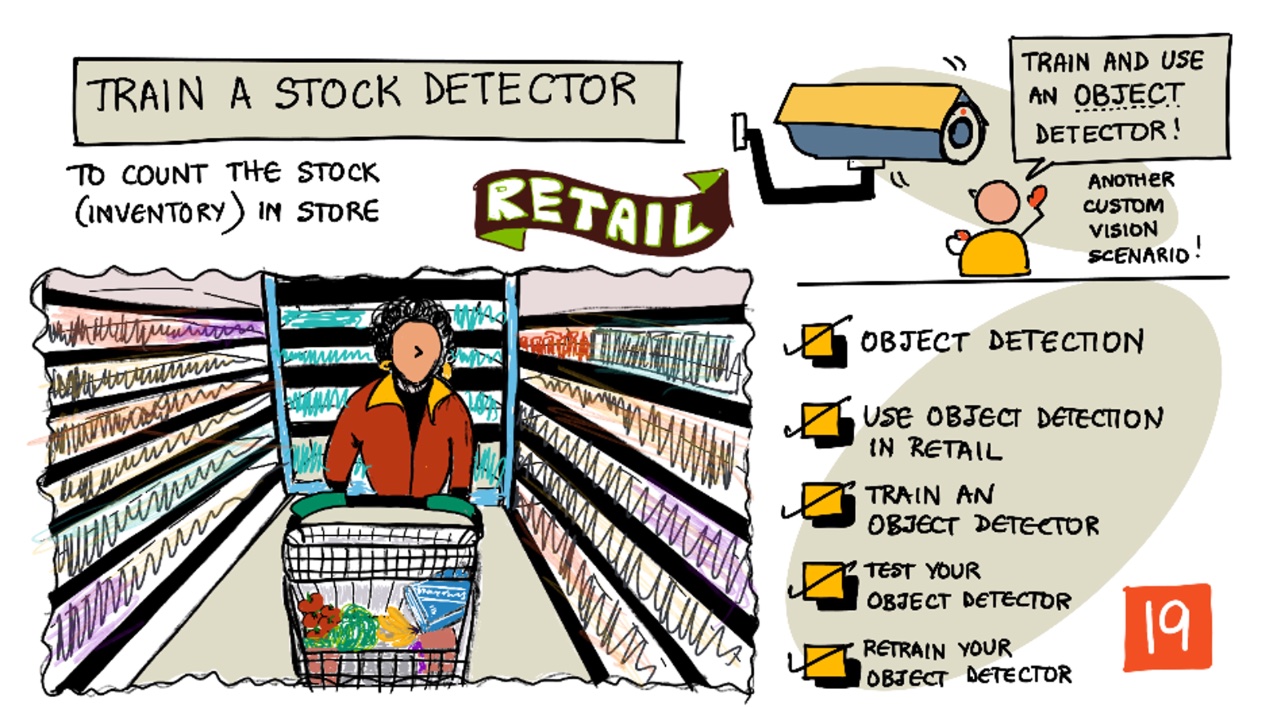 TRAIN A STOCK DETECTOR
TO COUNT THE STOCK
(INVENTORY) IN STORE
RETAIL
TRAIN AND USE
AN OBJECT
DETECTOR!
ANOTHER
CUSTOM
VISION
SCENARIO!
OBJECT DETECTION
USE OBJECT DETECTION
IN RETAIL
TRAIN AN
OBJECT DETECTOR
TEST YOUR
OBJECT DETECTOR
RETRAIN YOUR
OBJECT DETECTOR
19